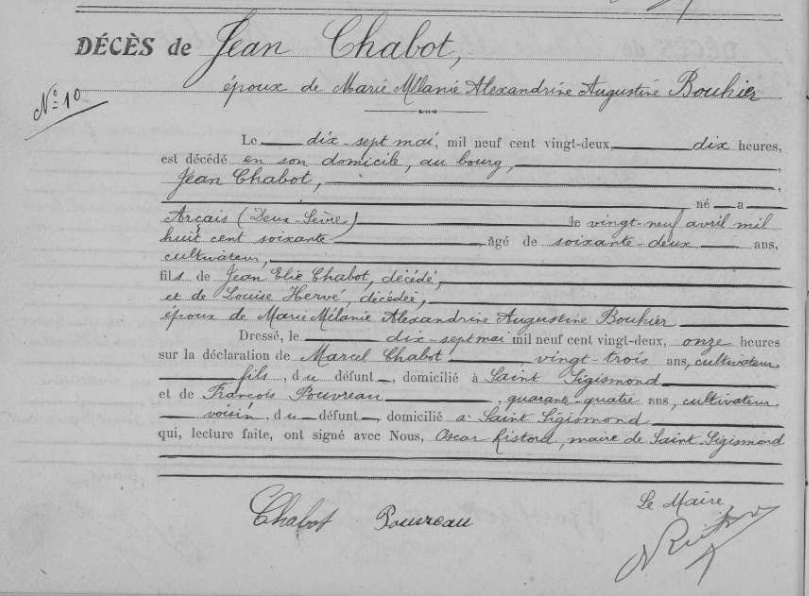 DÉCÈS de Jean Chabot,
époux de Marie Mélanie Alexandrine Augustine Bouhier
N° 10
Le dix-sept mai, mil neuf cent vingt-deux, dix heures,
est décédé en son domicile, au bourg,
Jean Chabot,
né a
Arçais (Deux-Sèvre) le vingt-neuf avril mil
huit cent soixante âgé de soixante-deux ans,
cultivateur,
fils de Jean Elie Chabot, décédé,
et de Louise Hervé, décédée,
époux de Marie Mélanie Alexandrine Augustine Bouhier
Dressé, le dix-sept mai mil neuf cent vingt-deux, onze heures
sur la déclaration de Marcel Chabot vingt-trois ans, cultivateur
fils, du défunt, domicilié à Saint Sigismond
et de François Pouvreau, quarante-quatre ans, cultivateur
voisin, du défunt, domicilié a Saint Sigismond
qui, lecture faite, ont signé avec Nous, Oscar Ristord, maire de Saint Sigismond
Chabot Pouvreau
Le Maire